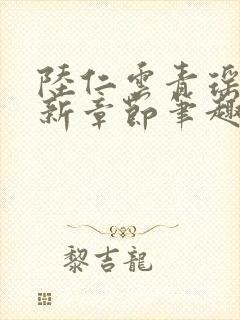 陸仁雲青瑤
新章節筆趣
黎吉龍